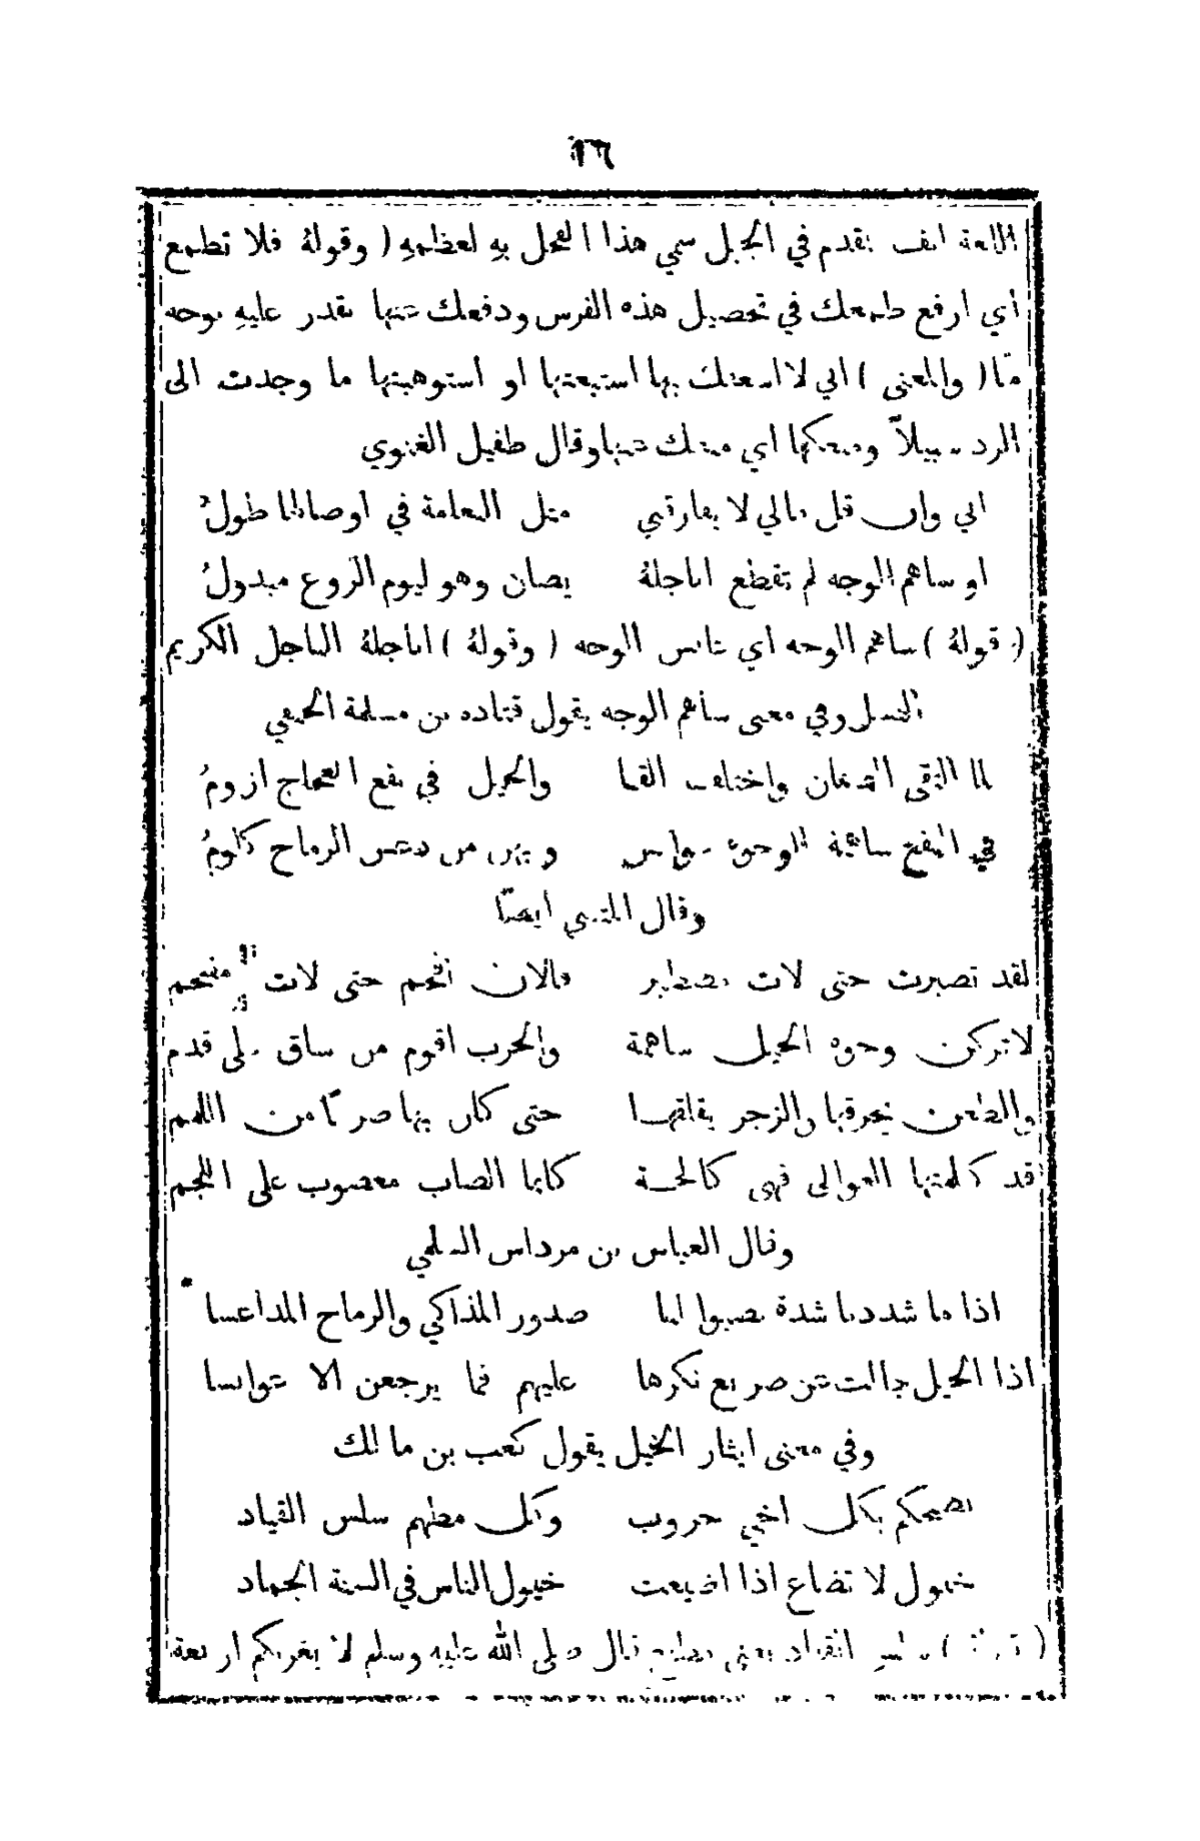 ١٦
انف يقدم في الجبل سمي هذا الفحل به لعظمهِ ( وقولهُ فلا تطمع
أي ارفع طمعك في تحصيل هذه الفرس ودفعك عنها بقدر عليهِ بوجه
مّا ( والمعنى ) اني لا اسعفك بها استبعتها او استوهبتها ما وجدت الى
الرد سبيلاً ومنعكها اي منعك عنها وقال طفيل الغنوي
اني وان قل مالي لا يفارقني مثل النعامة في اوصالها طولُ
او ساهم الوجه لم تقطع اباجلهُ يصان وهو ليوم الروع مبذولُ
( قولهُ ) ساهم الوجه اي عابس الوجه ( وقولهُ ) اباجلهُ الباجل الكريم
النسل وفي معنى ساهم الوجه يقول قتاده بن مسلمة الحنفي
لما التقى الصفان واختلف القنا والخيل في نقع العجاج ازومُ
في النقع ساهمة الوجوه عوابس وبهن من دعس الرماح كلومُ
وقال المتنبي ايضًا
لقد تصبرت حتى لات مصطبر فالان اقحم حتى لات مقتحم
لاتركن وجوه الخيل ساهمة والحرب اقوم من ساق على قدم
والطعن يحرقها والزجر يقلقها حتى كان بها صرعا من اللمم
قد كلمتها العوالى فهى كالحة كانما الصاب معصوب على اللجم
وقال العباس بن مرداس السلمي
اذا ما شددنا شدة نصبوا لنا صدور المذاكي والرماح المداعسا
اذا الخيل جالت عن صريع نكرها عليهم فما يرجعن الا عوابسا
وفي معنى ايثار الخيل يقول كعب بن مالك
نصبحكم بكل اخي حروب وكل مطهم سلس القياد
خيول لا تضاع اذا اضيعت خيول الناس في السنة الجماد
( قولهُ ) سلس القياد يعني مطيع قال صلى الله عليهِ وسلم لا يغرنكم اربعة